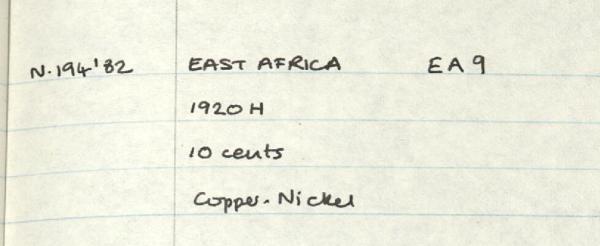 N.194'82 EAST AFRICA EA9
1920 H
10 cents
Copper-Nickel